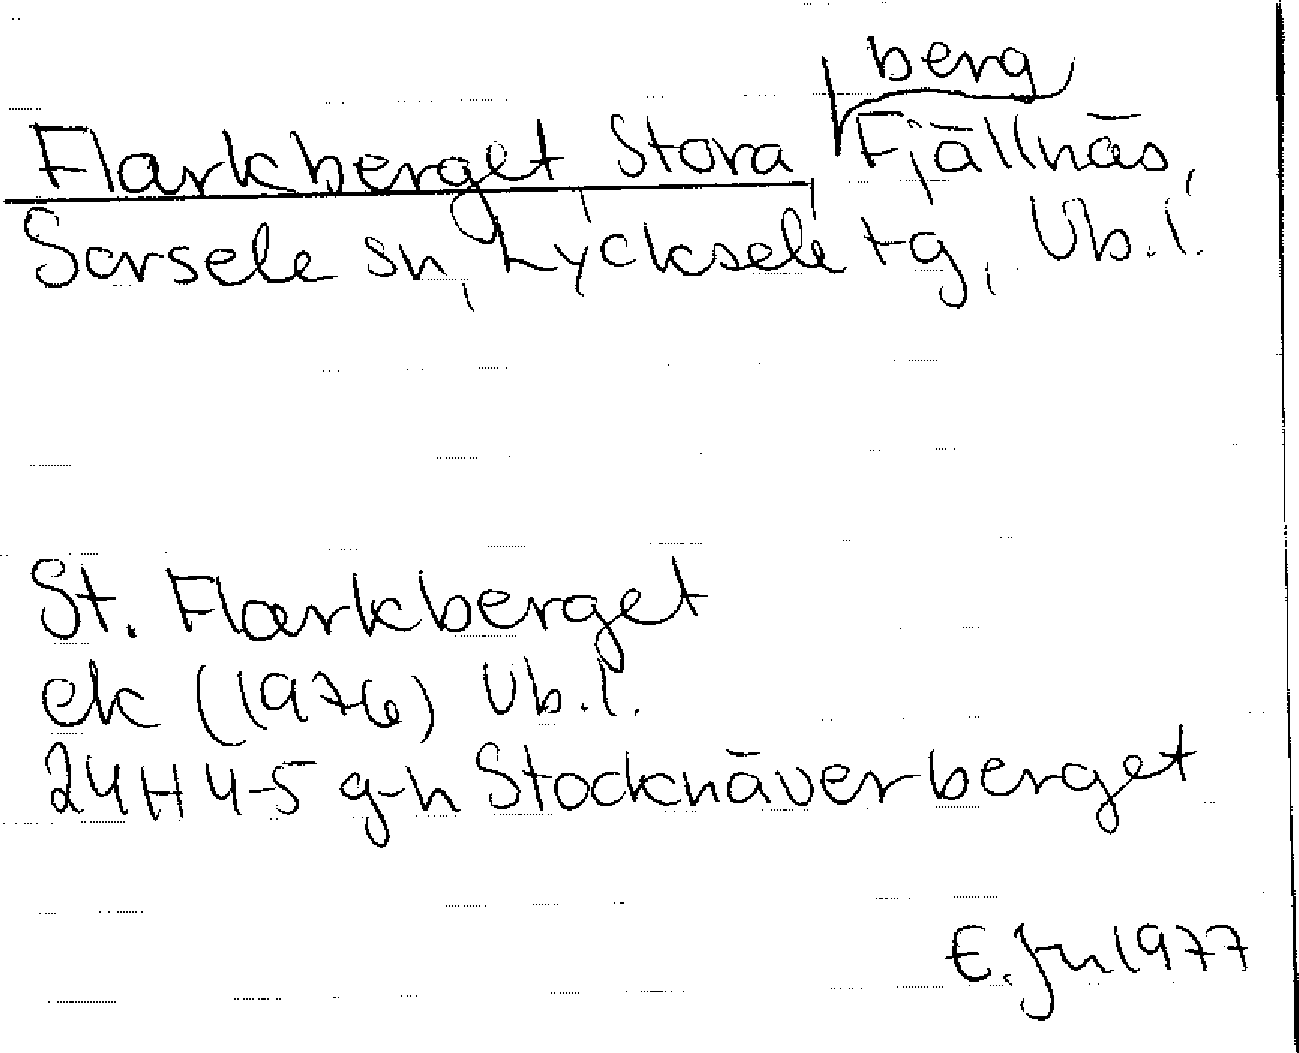 berg
Flarkberget Stora Fjällnäs,
Sorsele sn, Lycksele tg, Vb.l.
St. Flarkberget
ek (1976) Vb.l.
24H 4-5 g-h Stocknäverberget
E. Jn 1977